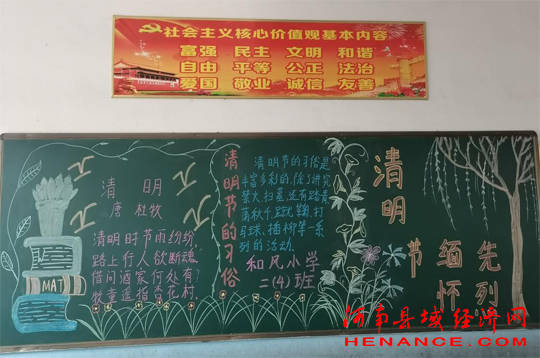 社会主义核心价值观基本内容
富强 民主 文明 和谐
自由 平等 公正 法治
爱国 敬业 诚信 友善
清明
唐 杜牧
清明时节雨纷纷,
路上行人欲断魂。
借问酒家何处有?
牧童遥指杏花村。
MAT
清明节的习俗
清明节的习俗是
丰富多彩的,除了讲究
禁火、扫墓,还有踏青
荡秋千、蹴鞠、打
马球、插柳等一系
列的活动。
和风小学
二(4)班
清明节
缅怀先烈
河南县域经济网
HENANCE.COM